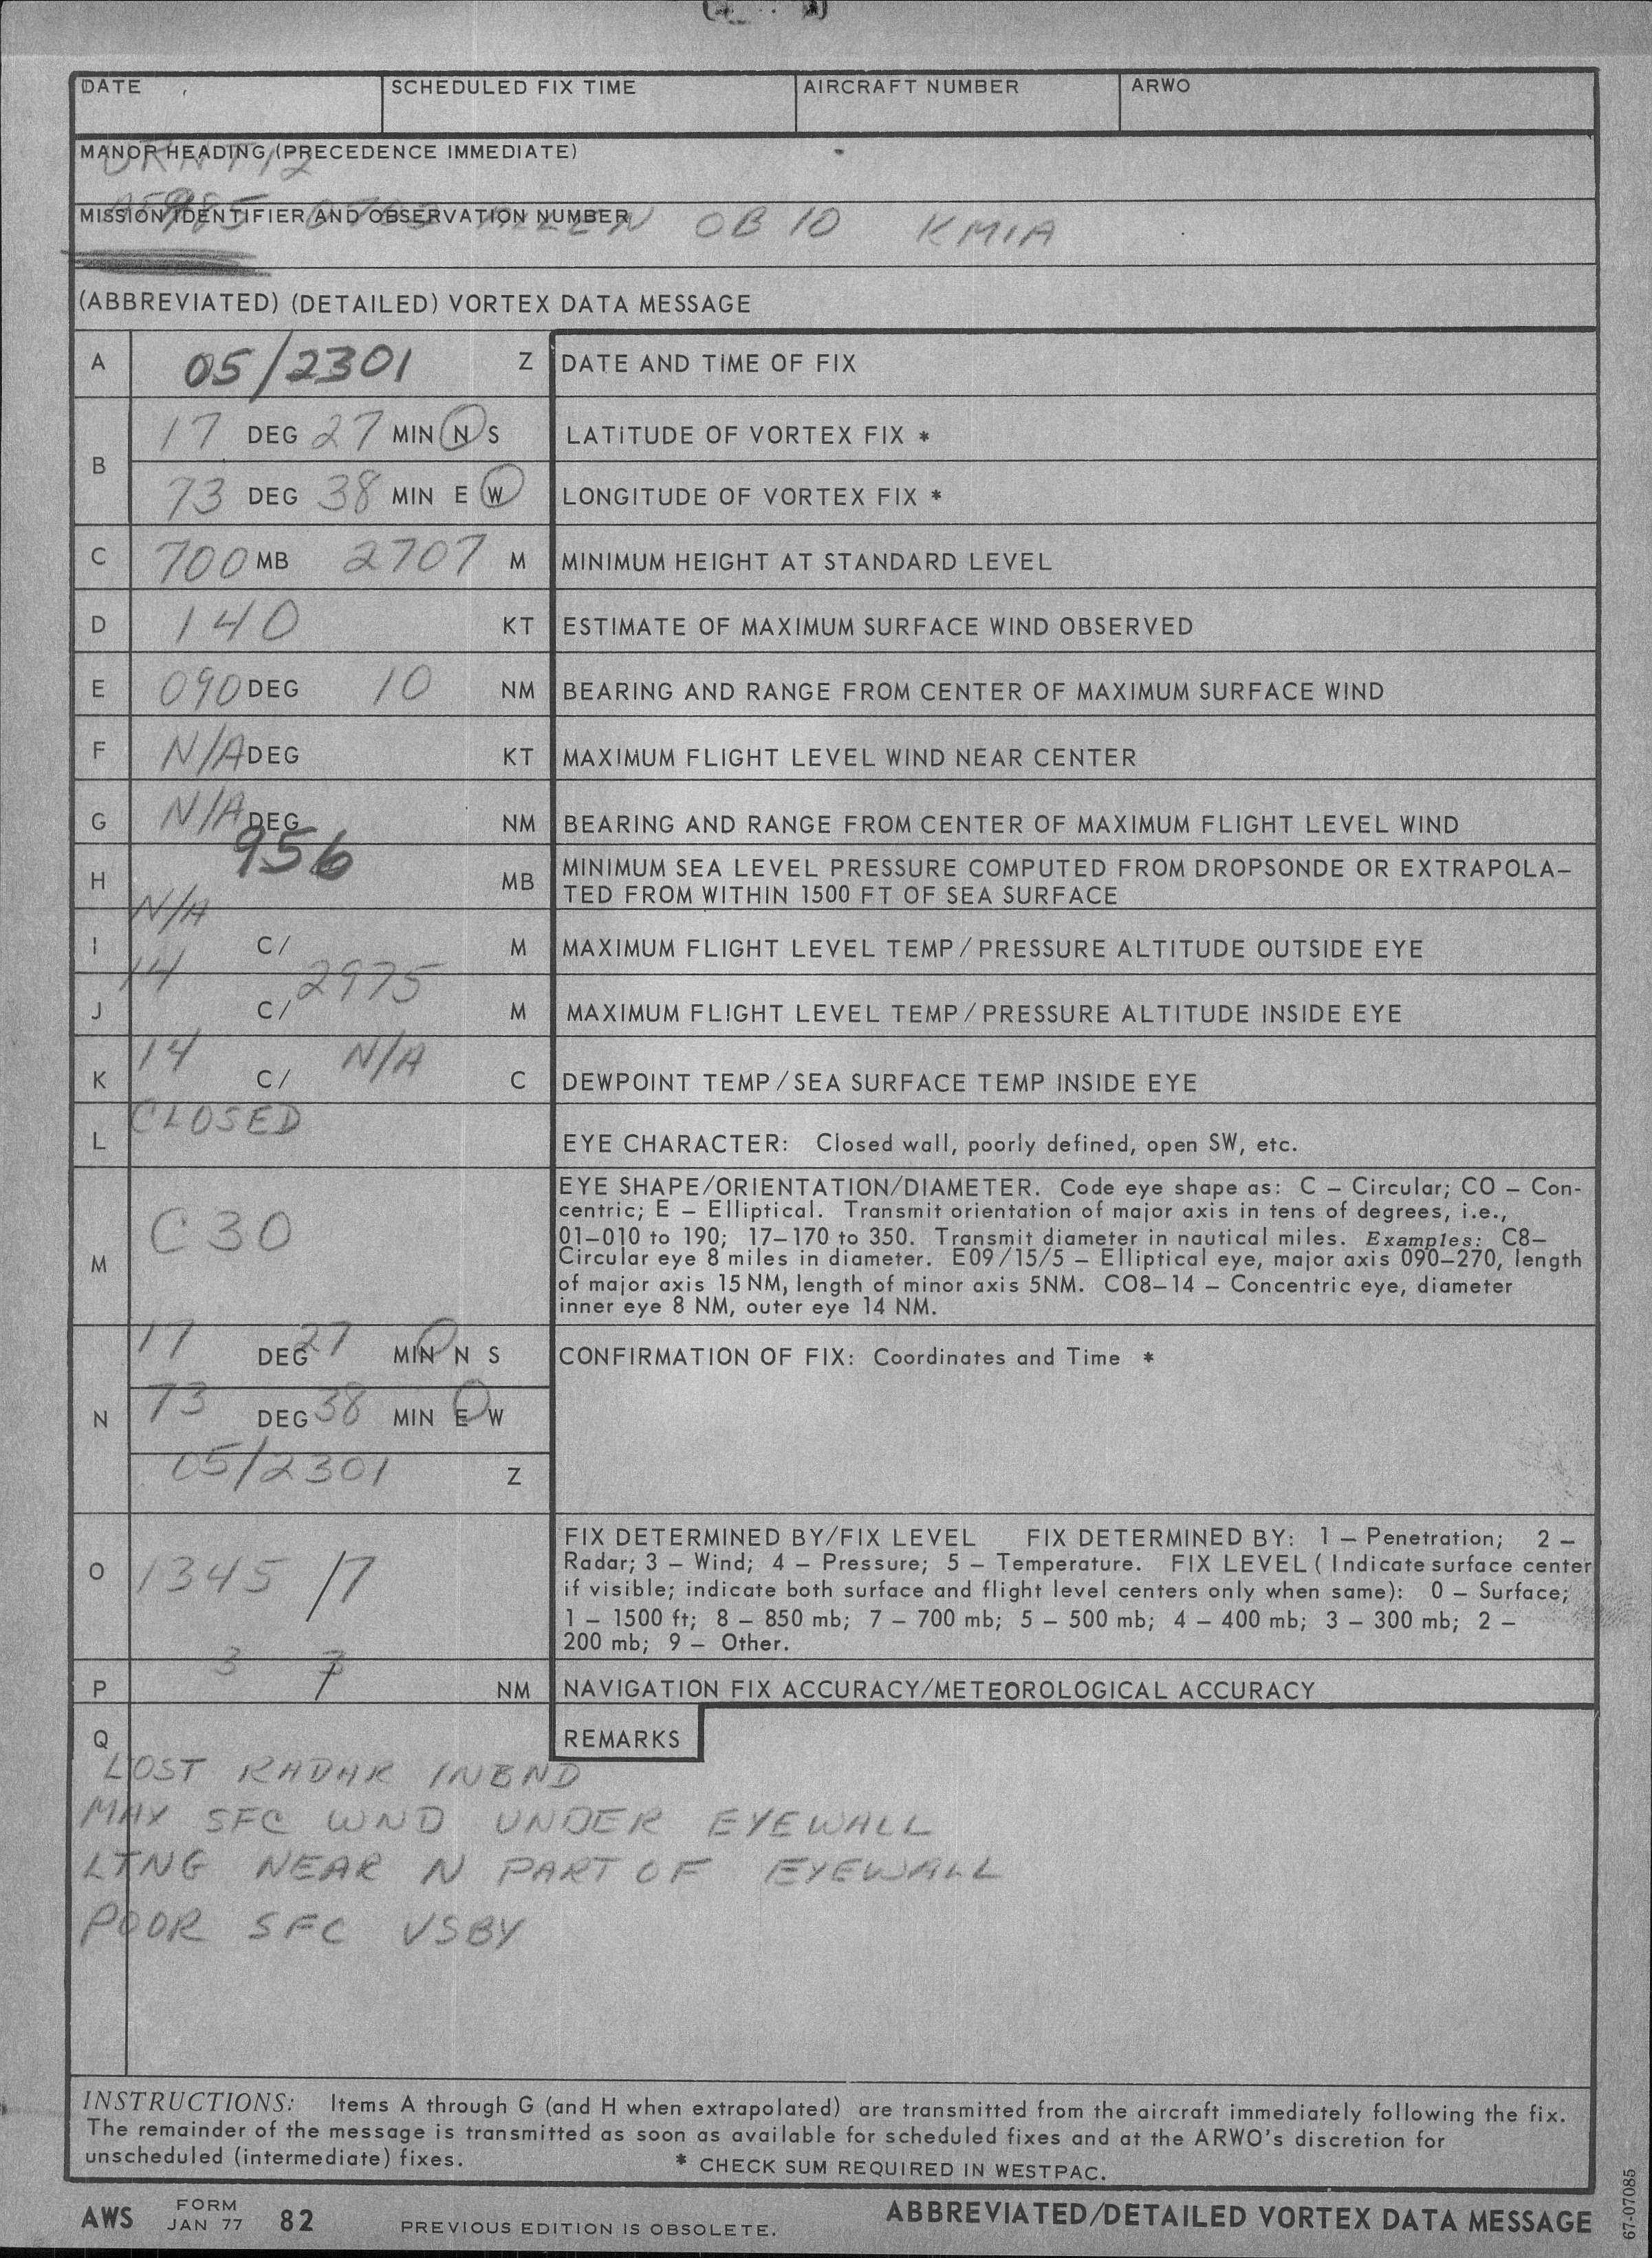 DATE SCHEDULED FIX TIME AIRCRAFT NUMBER ARWO
MANOR HEADING (PRECEDENCE IMMEDIATE)
URNT12
MISSION IDENTIFIER AND OBSERVATION NUMBER
AF985 ALLEN OB 10 KMIA
(ABBREVIATED) (DETAILED) VORTEX DATA MESSAGE
A 05/2301 Z DATE AND TIME OF FIX
B 17 DEG 27 MIN N S LATITUDE OF VORTEX FIX *
73 DEG 38 MIN E W LONGITUDE OF VORTEX FIX *
C 700 MB 2707 M MINIMUM HEIGHT AT STANDARD LEVEL
D 140 KT ESTIMATE OF MAXIMUM SURFACE WIND OBSERVED
E 090 DEG 10 NM BEARING AND RANGE FROM CENTER OF MAXIMUM SURFACE WIND
F N/A DEG KT MAXIMUM FLIGHT LEVEL WIND NEAR CENTER
G N/A DEG NM BEARING AND RANGE FROM CENTER OF MAXIMUM FLIGHT LEVEL WIND
H 956 MB MINIMUM SEA LEVEL PRESSURE COMPUTED FROM DROPSONDE OR EXTRAPOLA-
TED FROM WITHIN 1500 FT OF SEA SURFACE
I N/A C/ M MAXIMUM FLIGHT LEVEL TEMP/PRESSURE ALTITUDE OUTSIDE EYE
J 14 C/ 2975 M MAXIMUM FLIGHT LEVEL TEMP/PRESSURE ALTITUDE INSIDE EYE
K 14 C/ N/A C DEWPOINT TEMP/SEA SURFACE TEMP INSIDE EYE
L CLOSED EYE CHARACTER: Closed wall, poorly defined, open SW, etc.
M C30 EYE SHAPE/ORIENTATION/DIAMETER. Code eye shape as: C – Circular; CO – Con-
centric; E – Elliptical. Transmit orientation of major axis in tens of degrees, i.e.,
01–010 to 190; 17–170 to 350. Transmit diameter in nautical miles. Examples: C8–
Circular eye 8 miles in diameter. E09/15/5 – Elliptical eye, major axis 090–270, length
of major axis 15 NM, length of minor axis 5NM. CO8–14 – Concentric eye, diameter
inner eye 8 NM, outer eye 14 NM.
N 17 DEG 27 MIN N S CONFIRMATION OF FIX: Coordinates and Time *
73 DEG 38 MIN E W
05/2301 Z
O 1345 /7 FIX DETERMINED BY/FIX LEVEL FIX DETERMINED BY: 1 – Penetration; 2 –
Radar; 3 – Wind; 4 – Pressure; 5 – Temperature. FIX LEVEL (Indicate surface center
if visible; indicate both surface and flight level centers only when same): 0 – Surface;
1 – 1500 ft; 8 – 850 mb; 7 – 700 mb; 5 – 500 mb; 4 – 400 mb; 3 – 300 mb; 2 –
200 mb; 9 – Other.
P 3 / 3 NM NAVIGATION FIX ACCURACY/METEOROLOGICAL ACCURACY
Q REMARKS
LOST RADAR INBND
MAX SFC WND UNDER EYEWALL
LTNG NEAR N PART OF EYEWALL
POOR SFC VSBY
INSTRUCTIONS: Items A through G (and H when extrapolated) are transmitted from the aircraft immediately following the fix.
The remainder of the message is transmitted as soon as available for scheduled fixes and at the ARWO's discretion for
unscheduled (intermediate) fixes. * CHECK SUM REQUIRED IN WESTPAC.
AWS FORM JAN 77 82 PREVIOUS EDITION IS OBSOLETE. ABBREVIATED/DETAILED VORTEX DATA MESSAGE
67-07085